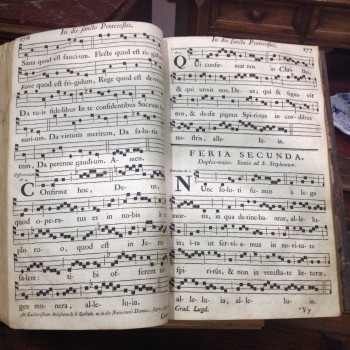 In die sancto Pentecostes.
Sana quod est saucium. Flecte quod est rigidum,
Fove quod est frigidum, Rege quod est devium.
Da tuis fidelibus In te confidentibus Sacrum
narium. Da virtutis meritum, Da salutis
tum, Da perenne gaudium. A- men.
COnfirma hoc, De- us,
quod o-pera-tus es in no-bis à
plo tuo, quod est in Je-ru
salem: ti- bi of- ferent re-
ges mu-nera, alle- lu- ia.
In die sancto Pentecostes. 177
QUi confir- mat nos in Chri-sto,
& qui unxit nos, De-us, qui & signavit
nos, & de-dit pignus Spiritus in cordibus
no-stris, alle- luia.
FERIA SECUNDA.
Duplex-majus. Statio ad S. Stephanum.
NUnc so-luti su-mus à le-ge
mor-tis, in qua de-tine-ba-mur, alle-lu-
ia; i-ta ut ser-vi-a-mus in no-vi-ta-te
spi-ri-tûs, & non in ve-tusta-te lit-teræ,
al- le-lu-ia, al- le- lu-ia.
Grad. Lugd. *Yy